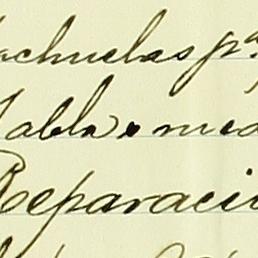 achuelas pª
Tabla med
Reparaci